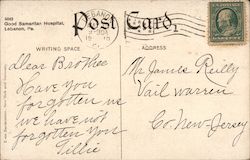 Good Samaritan Hospital,
Lebanon, Pa.
Post Card
WRITING SPACE
ADDRESS
Dear Brother
Have you
forgotten us
we have not
forgotten you
Tillie
Mr James Reilly
Vail warren
Co. New-Jersey